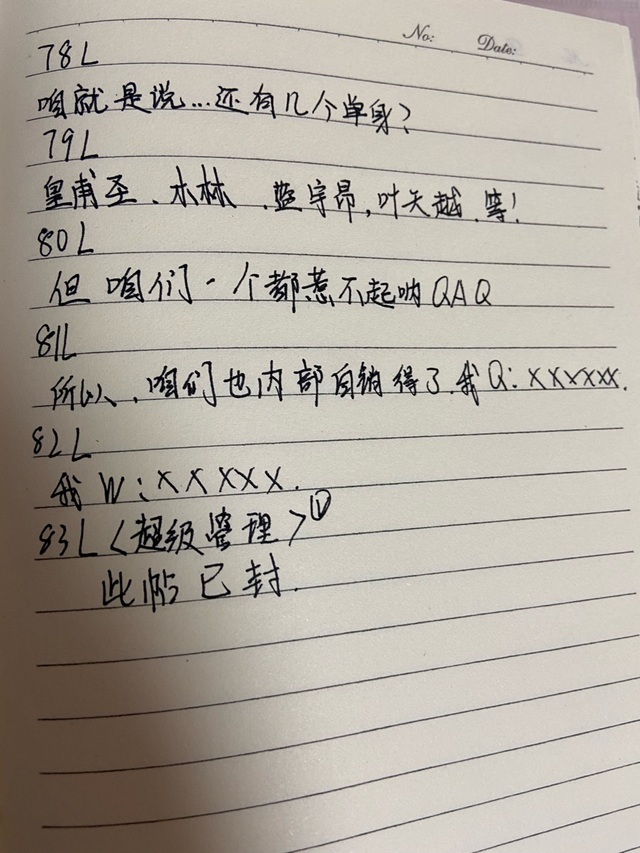 No: Date:
78L
咱就是说...还有几个单身?
79L
皇甫圣、木林、蓝宇昂,叶天越、等!
80L
但咱们一个都惹不起呐QAQ
81L
所以、咱们也内部自销得了.我Q:XXXXXX.
82L
我W:XXXXX.
83L<超级管理>Ⓥ
此帖已封.